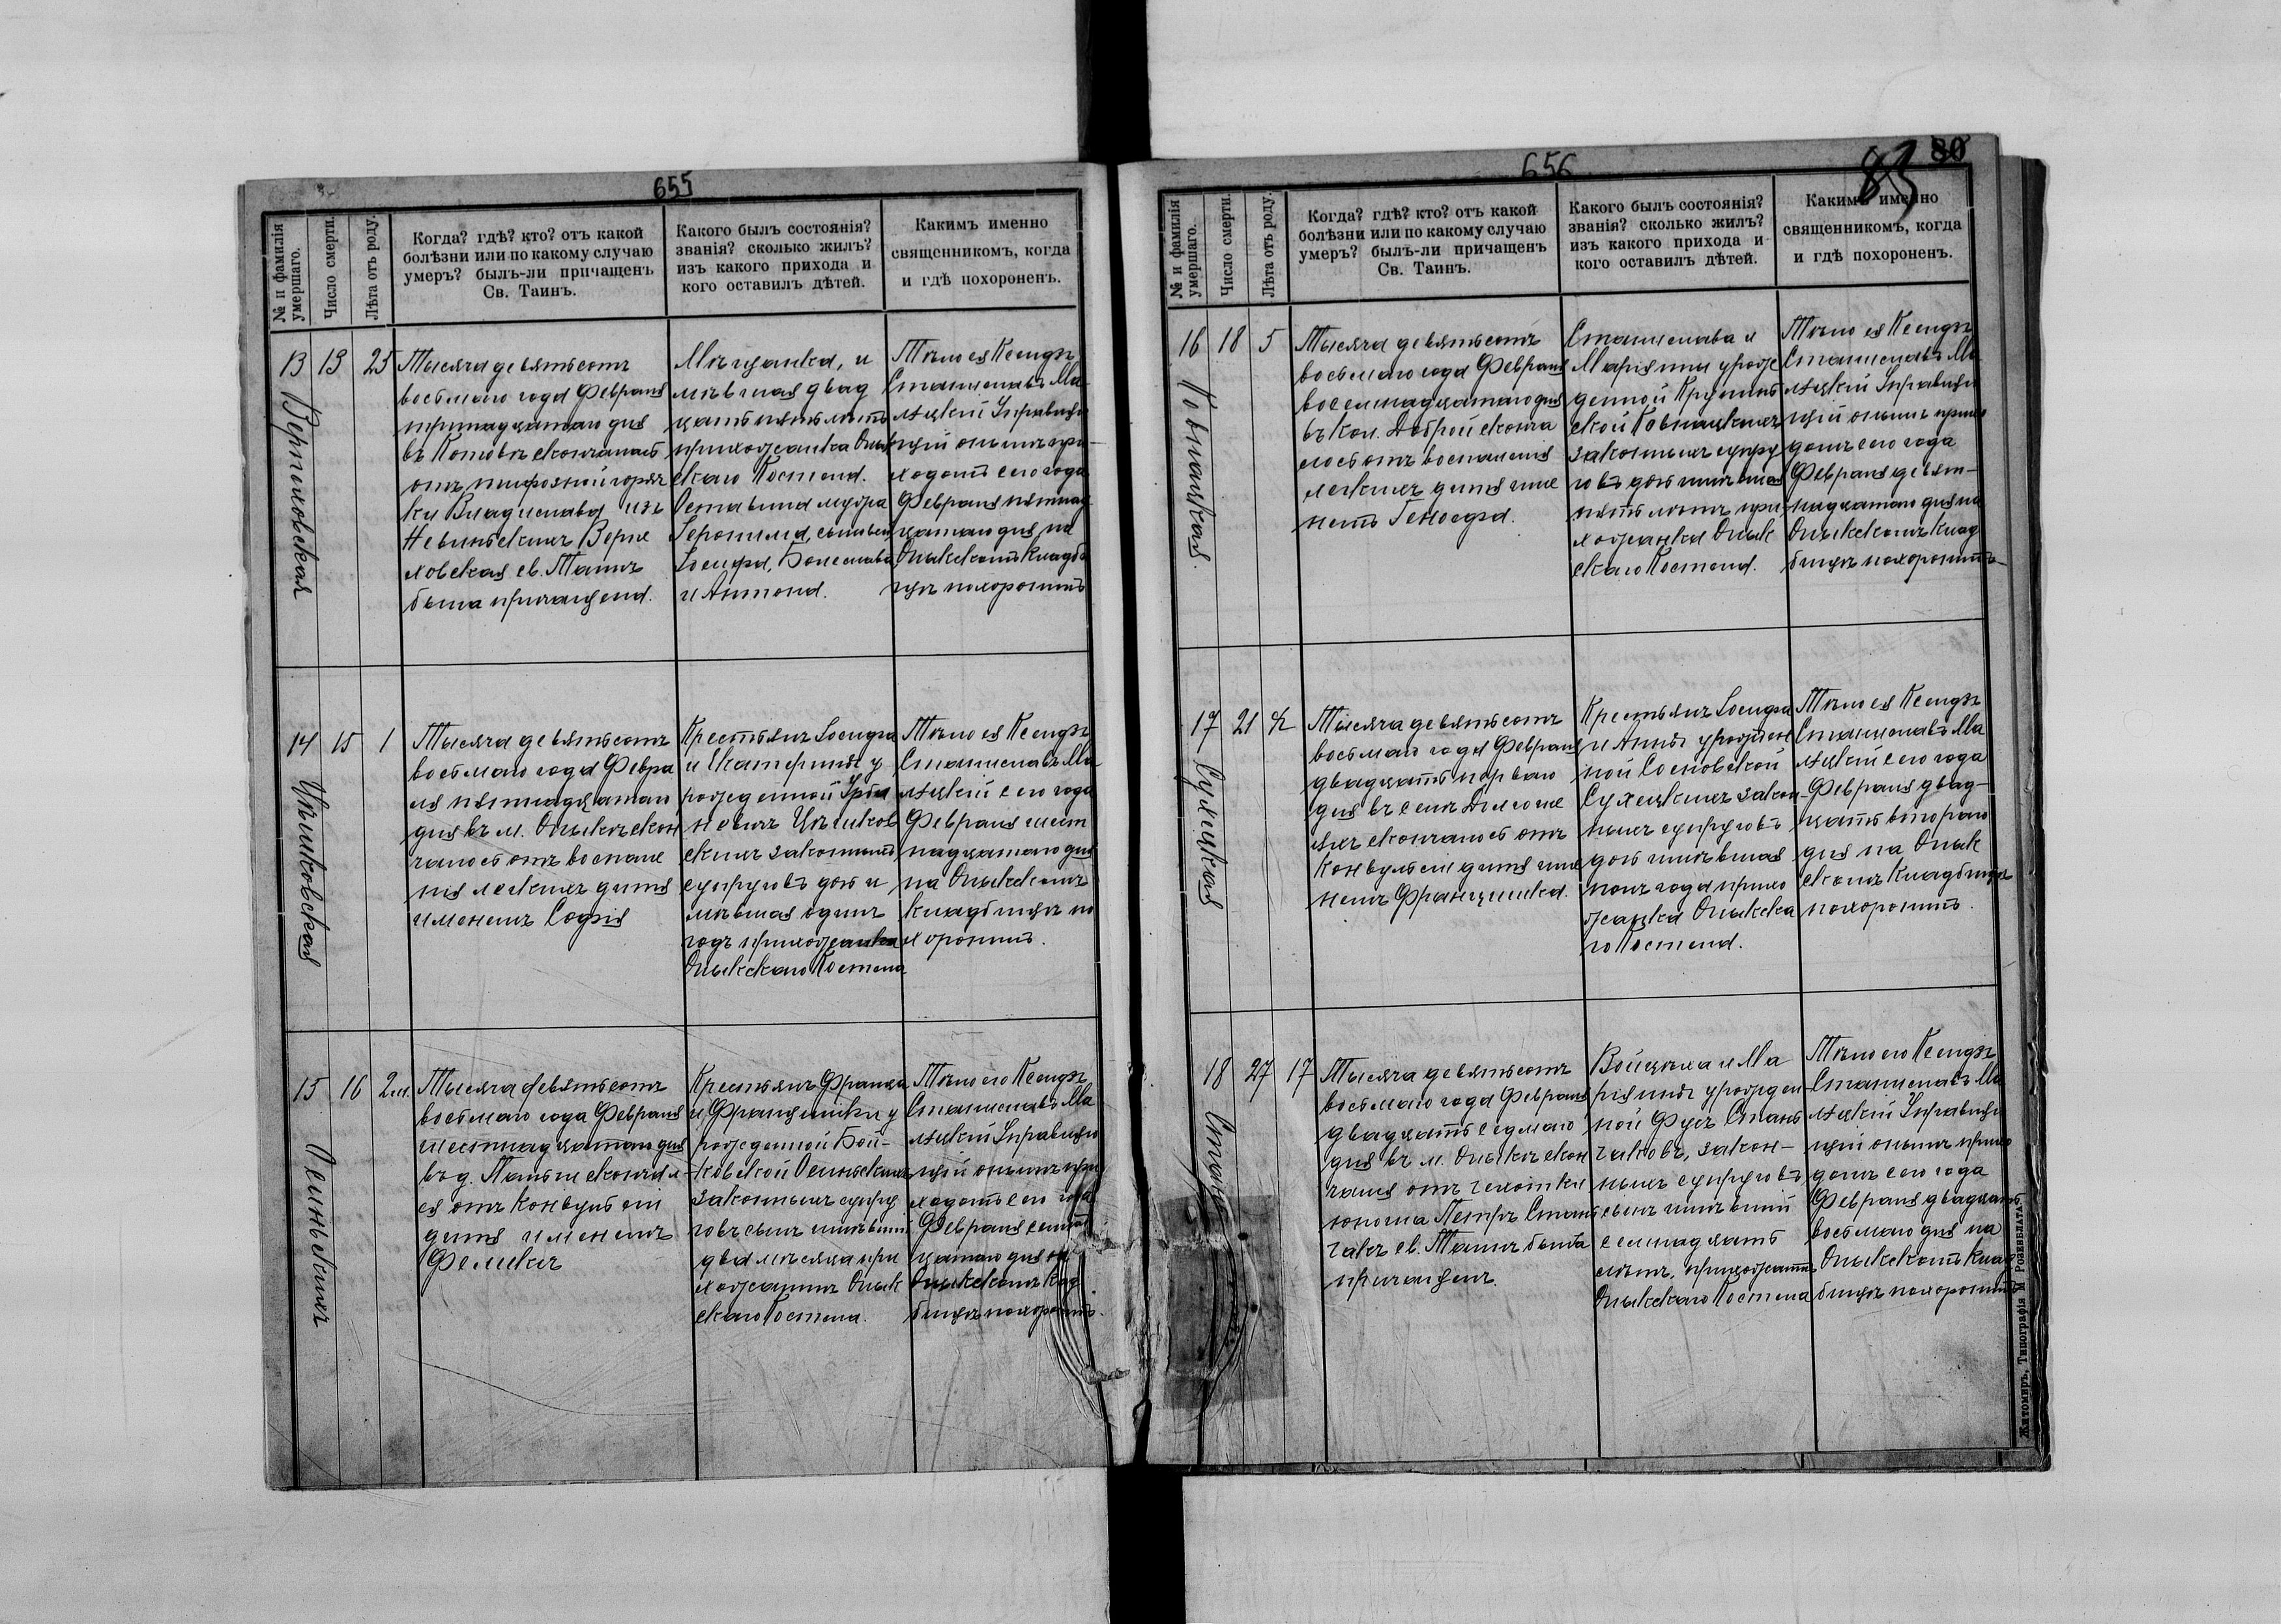 655
№ и фамилія
умершаго.
Число смерти.
Лѣта отъ роду.
Когда? гдѣ? кто? отъ какой
болѣзни или по какому случаю
умеръ? былъ-ли причащенъ
Св. Таинъ.
Какого былъ состоянія?
званія? сколько жилъ?
изъ какого прихода и
кого оставилъ дѣтей.
Какимъ именно
священникомъ, когда
и гдѣ похороненъ.
13
13
25
Тысяча девятьсотъ
восьмаго года Февраля
тринадцатаго дня
въ Котовѣ скончалась
отъ тифозной горяч
ки Владислава изъ
Невинскихъ Верпе
ховская св. Таинъ
была причащена.
Мѣщанка, и
мѣвшая двад
цать пять лѣтъ
прихожанка Олык
скаго Костела.
Оставила мужа
Іеронима, сыновей
Іосифа, Болеслава
и Антона.
Тѣло ея Ксендзъ
Станиславъ Ма-
лецкій Управляю
щій онымъ при-
ходомъ сего года
Февраля пятнад
цатаго дня, на
Олыкскомъ кладби
щѣ похоронилъ
14
15
1
Цѣшковская
Тысяча девятьсотъ
восьмаго года Февра
ля пятнадцатаго
дня въ м. Олыкѣ скон
чалось отъ воспале
нія легкихъ дитя
именемъ Софія
Крестьянъ Іосифа
и Екатерины у
рожденной Урба
новичъ Цѣшков
скихъ законныхъ
супруговъ дочь и
мѣвшая одинъ
годъ прихожанка
Олыкскаго Костела
Тѣло ея Ксендзъ
Станиславъ Ма
лецкій сего года
Февраля шест
надцатаго дня
на Олыкскомъ
кладбищѣ по
хоронилъ.
15
16
2 м.
Осиньскихъ
Тысяча девятьсотъ
восьмаго года Февраля
шестнадцатаго дня
въ д. скончал
ся отъ конвульсіи
дитя именемъ
Феликсъ
Крестьянъ Франца
и Францишки у
рожденной Бой-
ковской Осиньскихъ
законныхъ супру
говъ сынъ жившій
два мѣсяца при
хожанинъ Олык
скаго Костела.
Тѣло его Ксендзъ
Станиславъ Ма
лецкій Управляю
щій онымъ при
ходомъ сего года
Февраля семнад
цатаго дня на
Олыкскомъ клад
бищѣ похоронилъ.
656
83
80
№ и фамилія
умершаго.
Число смерти.
Лѣта отъ роду.
Когда? гдѣ? кто? отъ какой
болѣзни или по какому случаю
умеръ? былъ-ли причащенъ
Св. Таинъ.
Какого былъ состоянія?
званія? сколько жилъ?
изъ какого прихода и
кого оставилъ дѣтей.
Какимъ именно
священникомъ, когда
и гдѣ похороненъ.
16
18
5
Тысяча девятьсотъ
восьмаго года Февраля
восемнадцатаго дня
въ Кол. Доброй сконча
лось отъ воспаленія
легкихъ дитя име
немъ Геновефа.
Станислава и
Маріанны урож
денной Крушинь
ской
законныхъ супру
говъ дочь жившая
пять лѣтъ при
хожанка Олык
скаго Костела.
Тѣло ея Ксендзъ
Станиславъ Ма
лецкій Управляю
щій онымъ прихо
домъ сего года
Февраля девят-
надцатаго дня на
Олыкскомъ клад
бищѣ похоронилъ
17
21
½
Сухецкая
Тысяча девятьсотъ
восьмаго года Февраля
двадцать перваго
дня въ селѣ
скончалось отъ
конвульсіи дитя име
немъ Францишка.
Крестьянъ Іосифа
и Анны урожден
ной Сосновской
Сухецкихъ закон-
ныхъ супруговъ
дочь жившая
полъ года прихо
жанка Олыкска
го Костела.
Тѣло ея Ксендзъ
Станиславъ Ма
лецкій сего года
Февраля двад-
цать втораго
дня на Олык
скомъ кладбищѣ
похоронилъ.
18
27
17
Тысяча девятьсотъ
восьмаго года Февраля
двадцать седьмаго
дня въ м. Олыкѣ скон
чался отъ чахотки
юноша Петръ Стань
чакъ св. Таинъ былъ
причащенъ.
Войцѣха и Ма
ріанны урожден
ной Фусъ Стань
чаковъ, закон-
ныхъ супруговъ
сынъ жившій
семнадцать
лѣтъ, прихожанинъ
Олыкскаго Костела
Тѣло его Ксендзъ
Станиславъ Ма
лецкій Управляю
щій онымъ прихо
домъ сего года
Февраля двадцать
восьмаго дня на
Олыкскомъ клад
бищѣ похоронилъ
Житомиръ, Типографія М. Розенблата